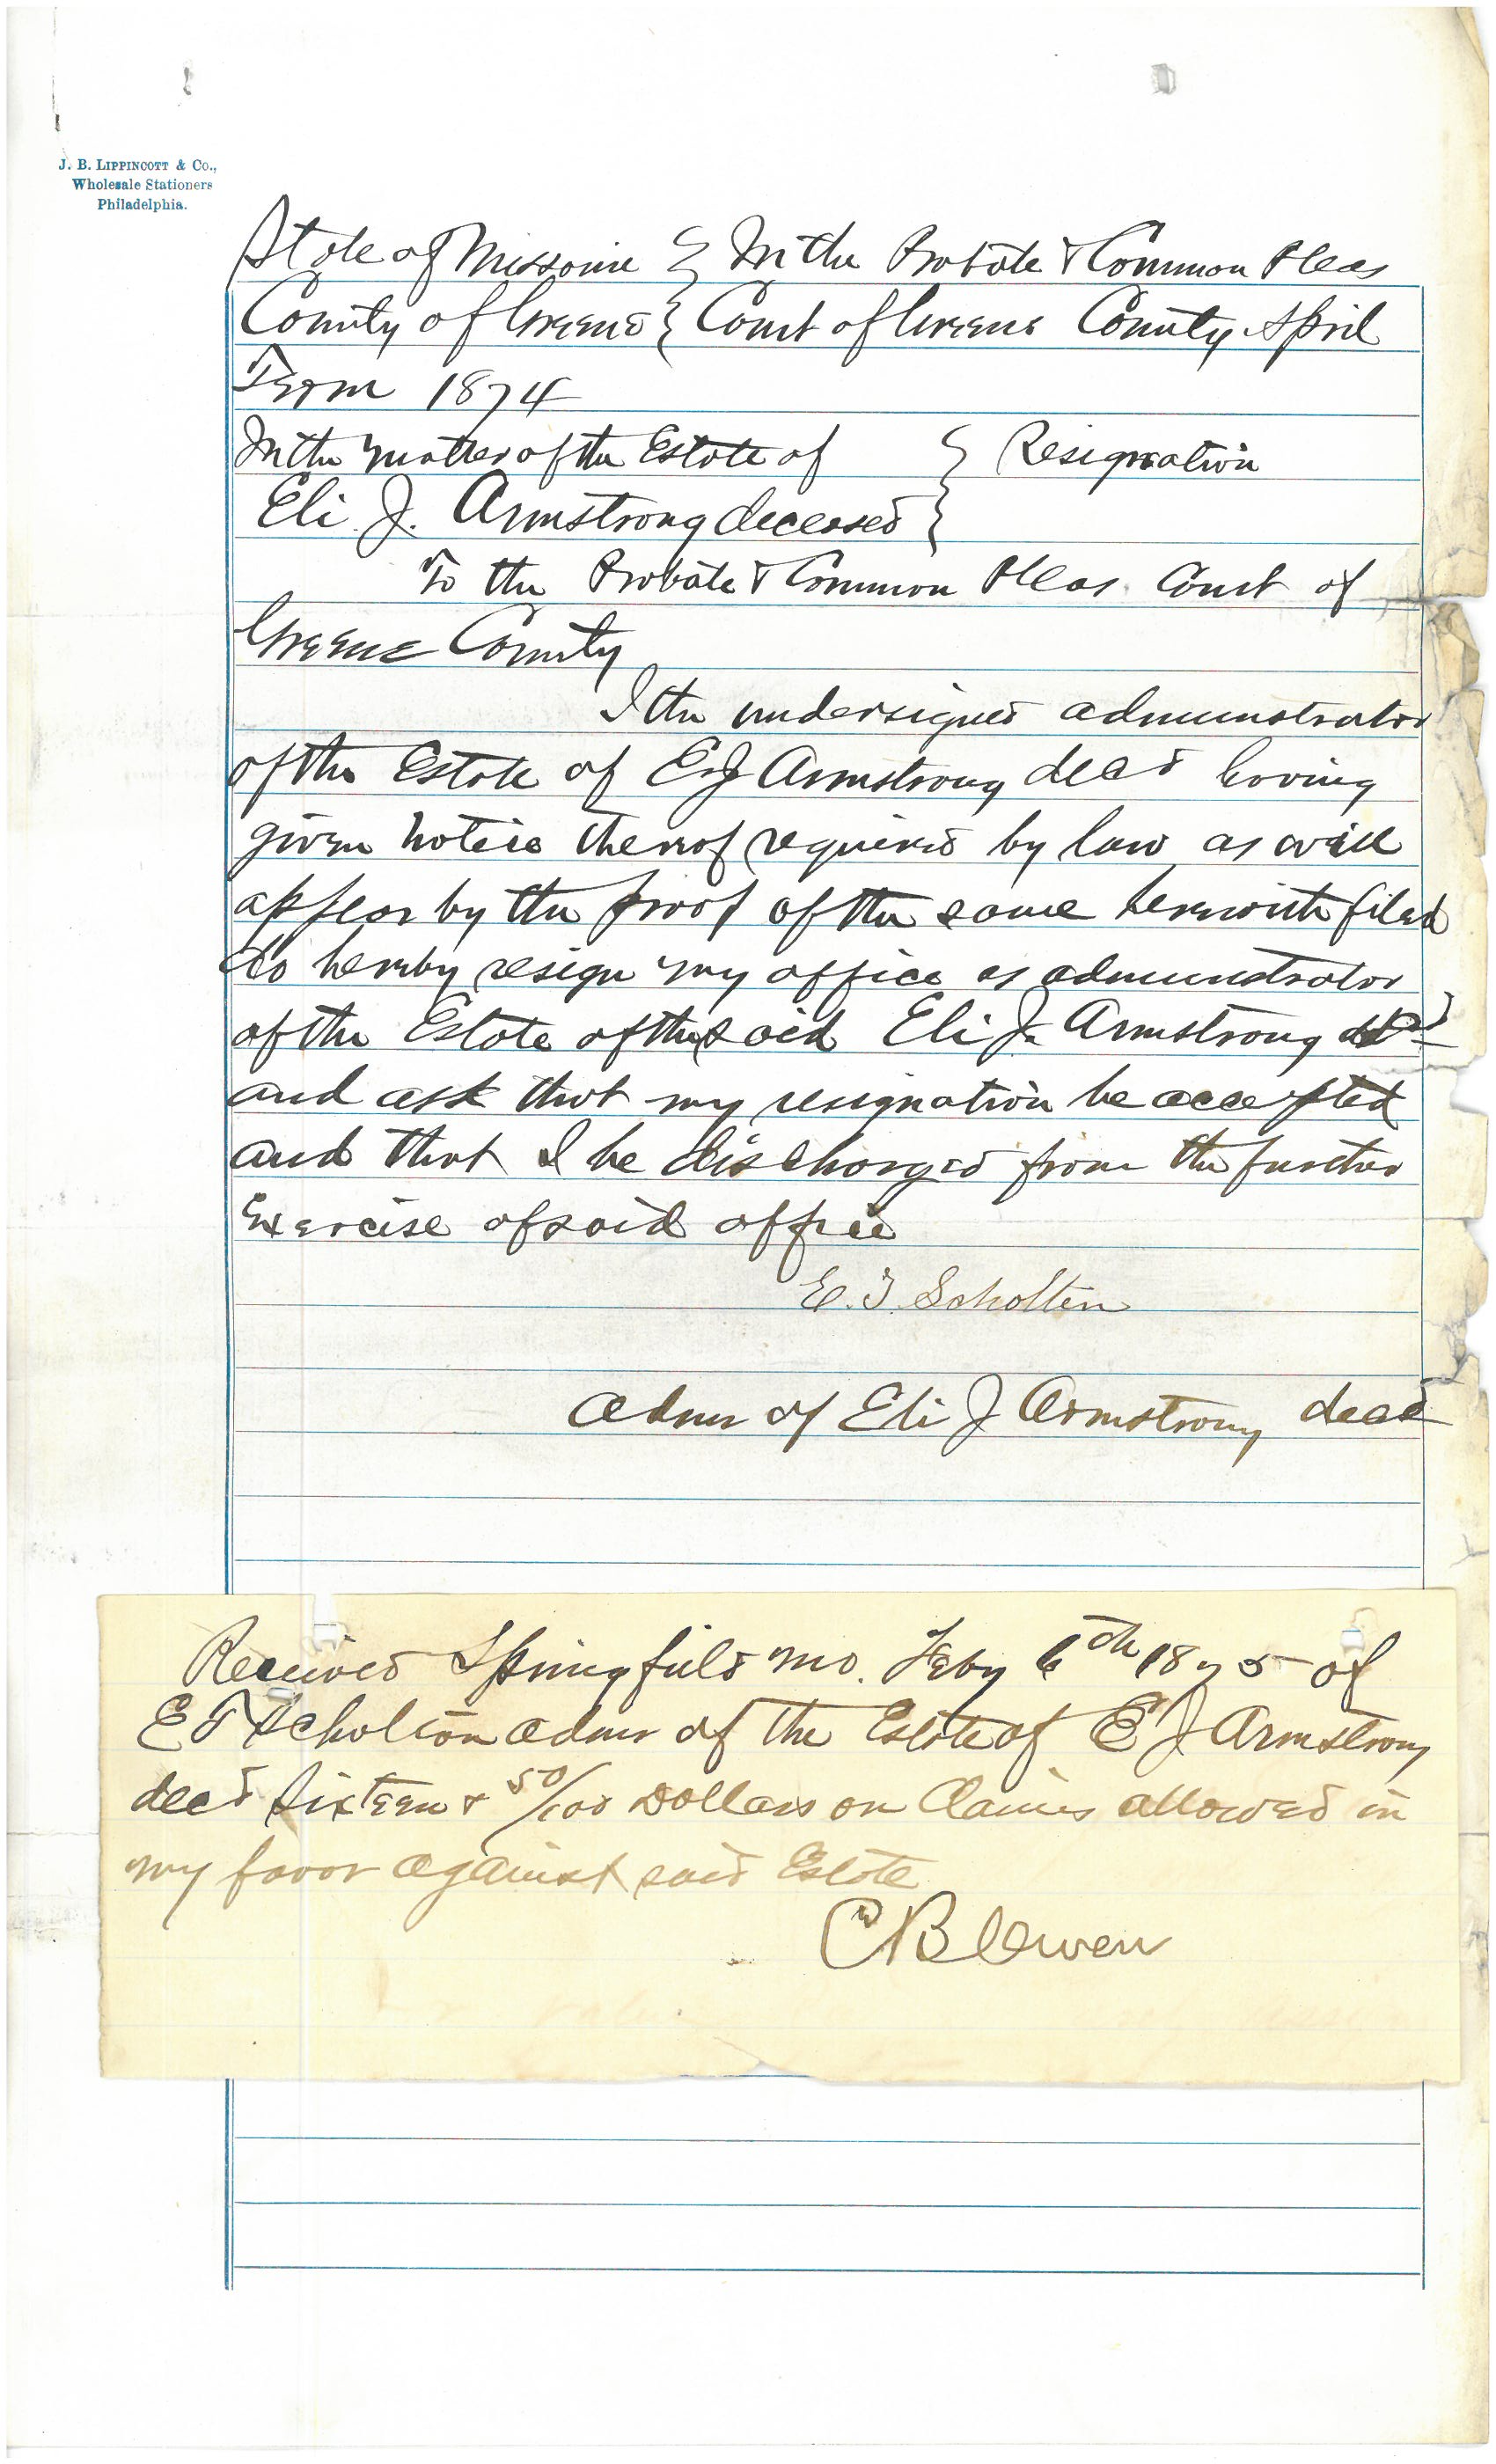 J. B. Lippincott & Co.,
Wholesale Stationers
Philadelphia.
State of Missouri } In the Probate & Common Pleas
County of Greene } Court of Greene County April
Term 1874
In the matter of the Estate of } Resignation
Eli J. Armstrong deceased }
To the Probate & Common Pleas Court of
Greene County
I the undersigned administrator
of the Estate of E J Armstrong decd having
given notice thereof required by law as will
appear by the proof of the same herewith filed
do hereby resign my office as administrator
of the Estate of the said Eli J. Armstrong decd
and ask that my resignation be accepted
and that I be discharged from the further
Exercise of said office
E. T. Scholten
Admr of Eli J Armstrong decd
Received Springfield Mo. Feby 6th 1875 of
E T Scholten admr of the Estate of E J Armstrong
decd Sixteen & 50/100 Dollars on Claims allowed in
my favor against said Estate
C B Owen